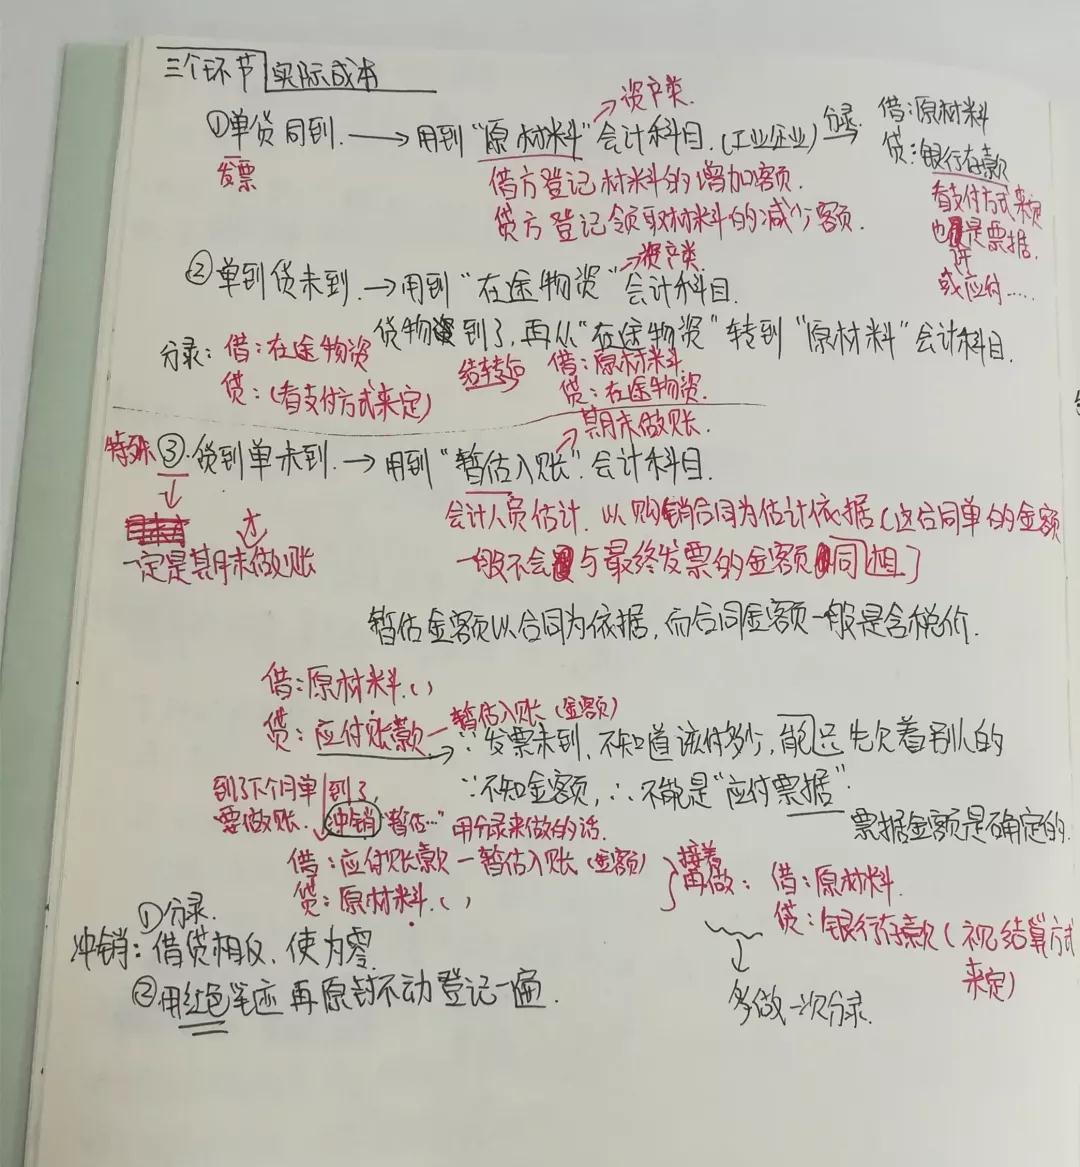 三个环节 实际成本
资产类.
①单货同到. → 用到“原材料”会计科目.(工业企业) 分录 借:原材料
贷:银行存款
发票
借方登记材料的增加额.
贷方登记领取材料的减少额.
看支付方式来定
也是票据.
或应付……
资产类.
②单到货未到. → 用到“在途物资”会计科目.
货物到了,再从“在途物资”转到“原材料”会计科目.
分录: 借:在途物资
贷:(看支付方式来定)
结转后 借:原材料.
贷:在途物资.
期末做账.
特殊 ③.货到单未到. → 用到“暂估入账”.会计科目.
会计人员估计. 以购销合同为估计依据(这合同单的金额
一般不会与最终发票的金额同)
一定是期末做账
暂估金额以合同为依据,而合同金额一般是含税价.
借:原材料.( )
贷:应付账款—暂估入账(金额)
∵发票未到,不知道该付多少,能只先欠着别人的
∵不知金额,∴不能是“应付票据”
票据金额是确定的.
到了下个月单到了,
要做账. 冲销“暂估…” 用分录来做的话.
借:应付账款—暂估入账(金额)
贷:原材料.( )
接着
再做: 借:原材料.
贷:银行存款(视结算方式
来定)
①分录.
冲销:借贷相反,使为零.
②用红色笔迹再原封不动登记一遍.
多做一次分录.